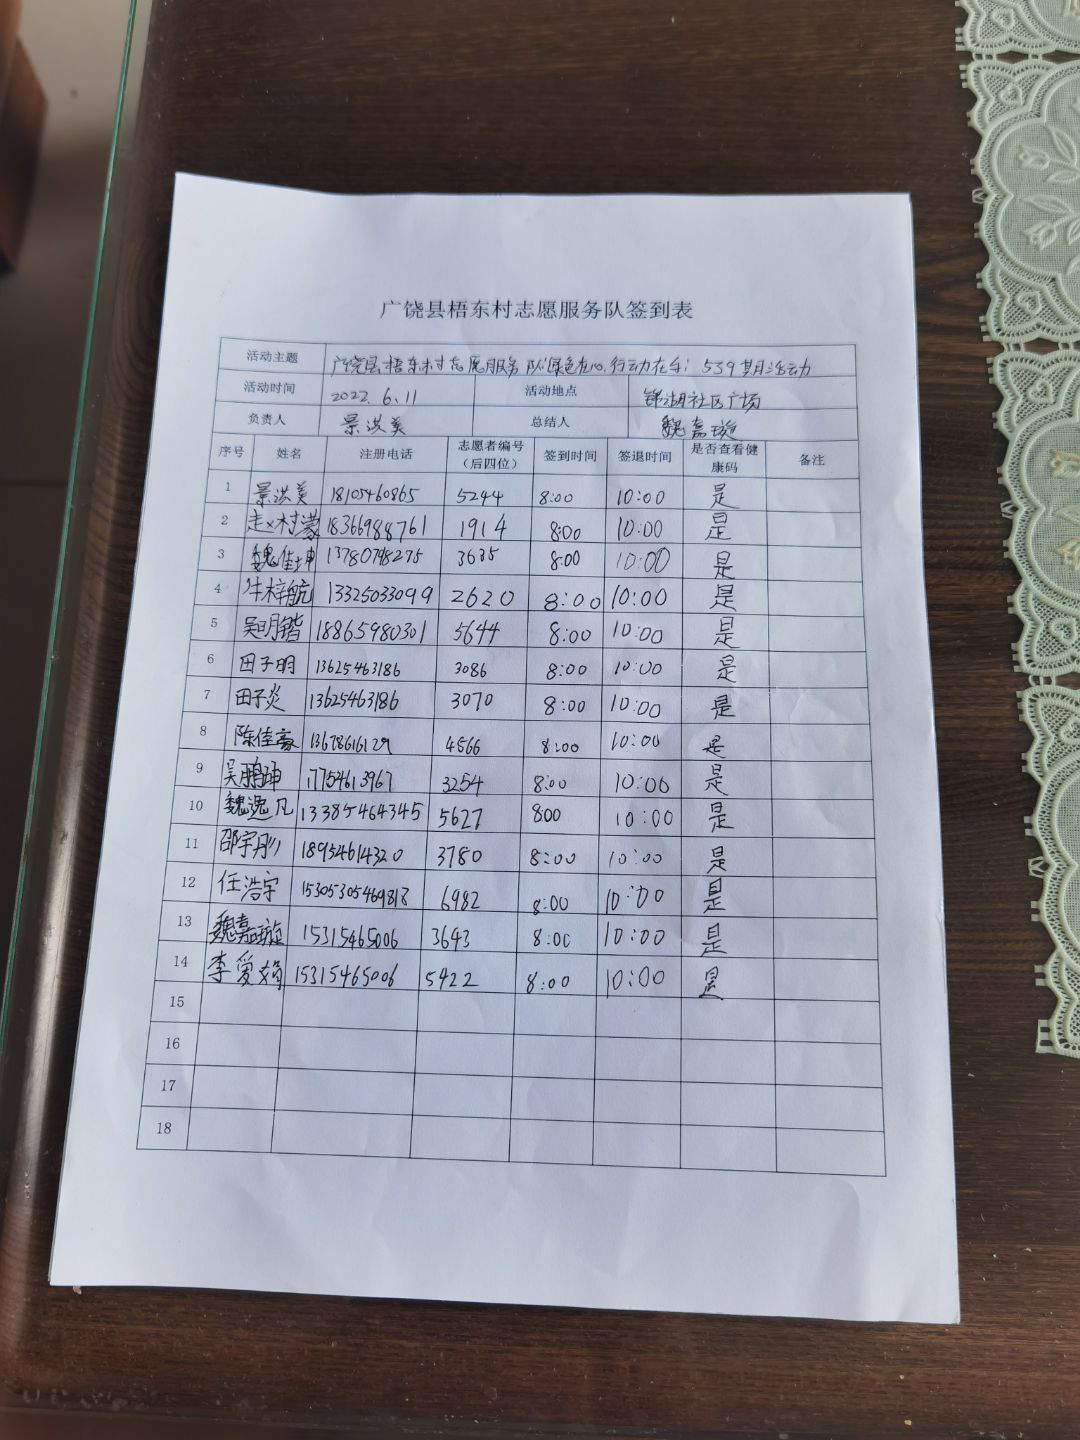 广饶县梧东村志愿服务队签到表
活动主题 广饶县梧东村志愿服务队"绿色在心.行动在手" 539期活动
活动时间 2022.6.11 活动地点 锦湖社区广场
负责人 景洪美 总结人 魏嘉璇
序号 姓名 注册电话 志愿者编号（后四位） 签到时间 签退时间 是否查看健康码 备注
1 景洪美 18105460865 5244 8:00 10:00 是
2 18366988761 1914 8:00 10:00 是
3 魏佳坤 13780798275 3635 8:00 10:00 是
4 牛梓航 13325033099 2620 8:00 10:00 是
5 吴明锴 18865980301 5644 8:00 10:00 是
6 田子明 13625463186 3086 8:00 10:00 是
7 田子炎 13625463186 3070 8:00 10:00 是
8 陈佳豪 13678616129 4566 8:00 10:00 是
9 吴鹏坤 17754613967 3254 8:00 10:00 是
10 魏逸凡 13385464345 5627 800 10:00 是
11 邵宇彤 18954614320 3780 8:00 10:00 是
12 任浩宇 15305305469818 6982 8:00 10:00 是
13 魏嘉璇 15315465006 3643 8:00 10:00 是
14 李爱娟 15315465006 5422 8:00 10:00 是
15
16
17
18